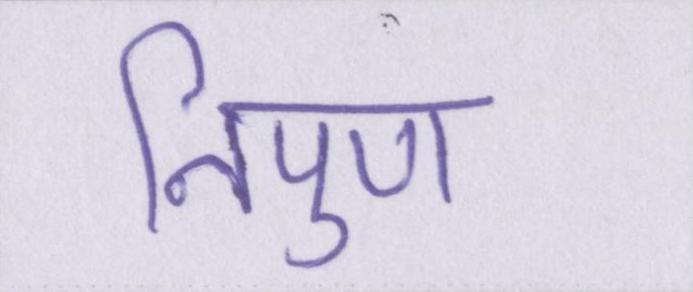 निपुण